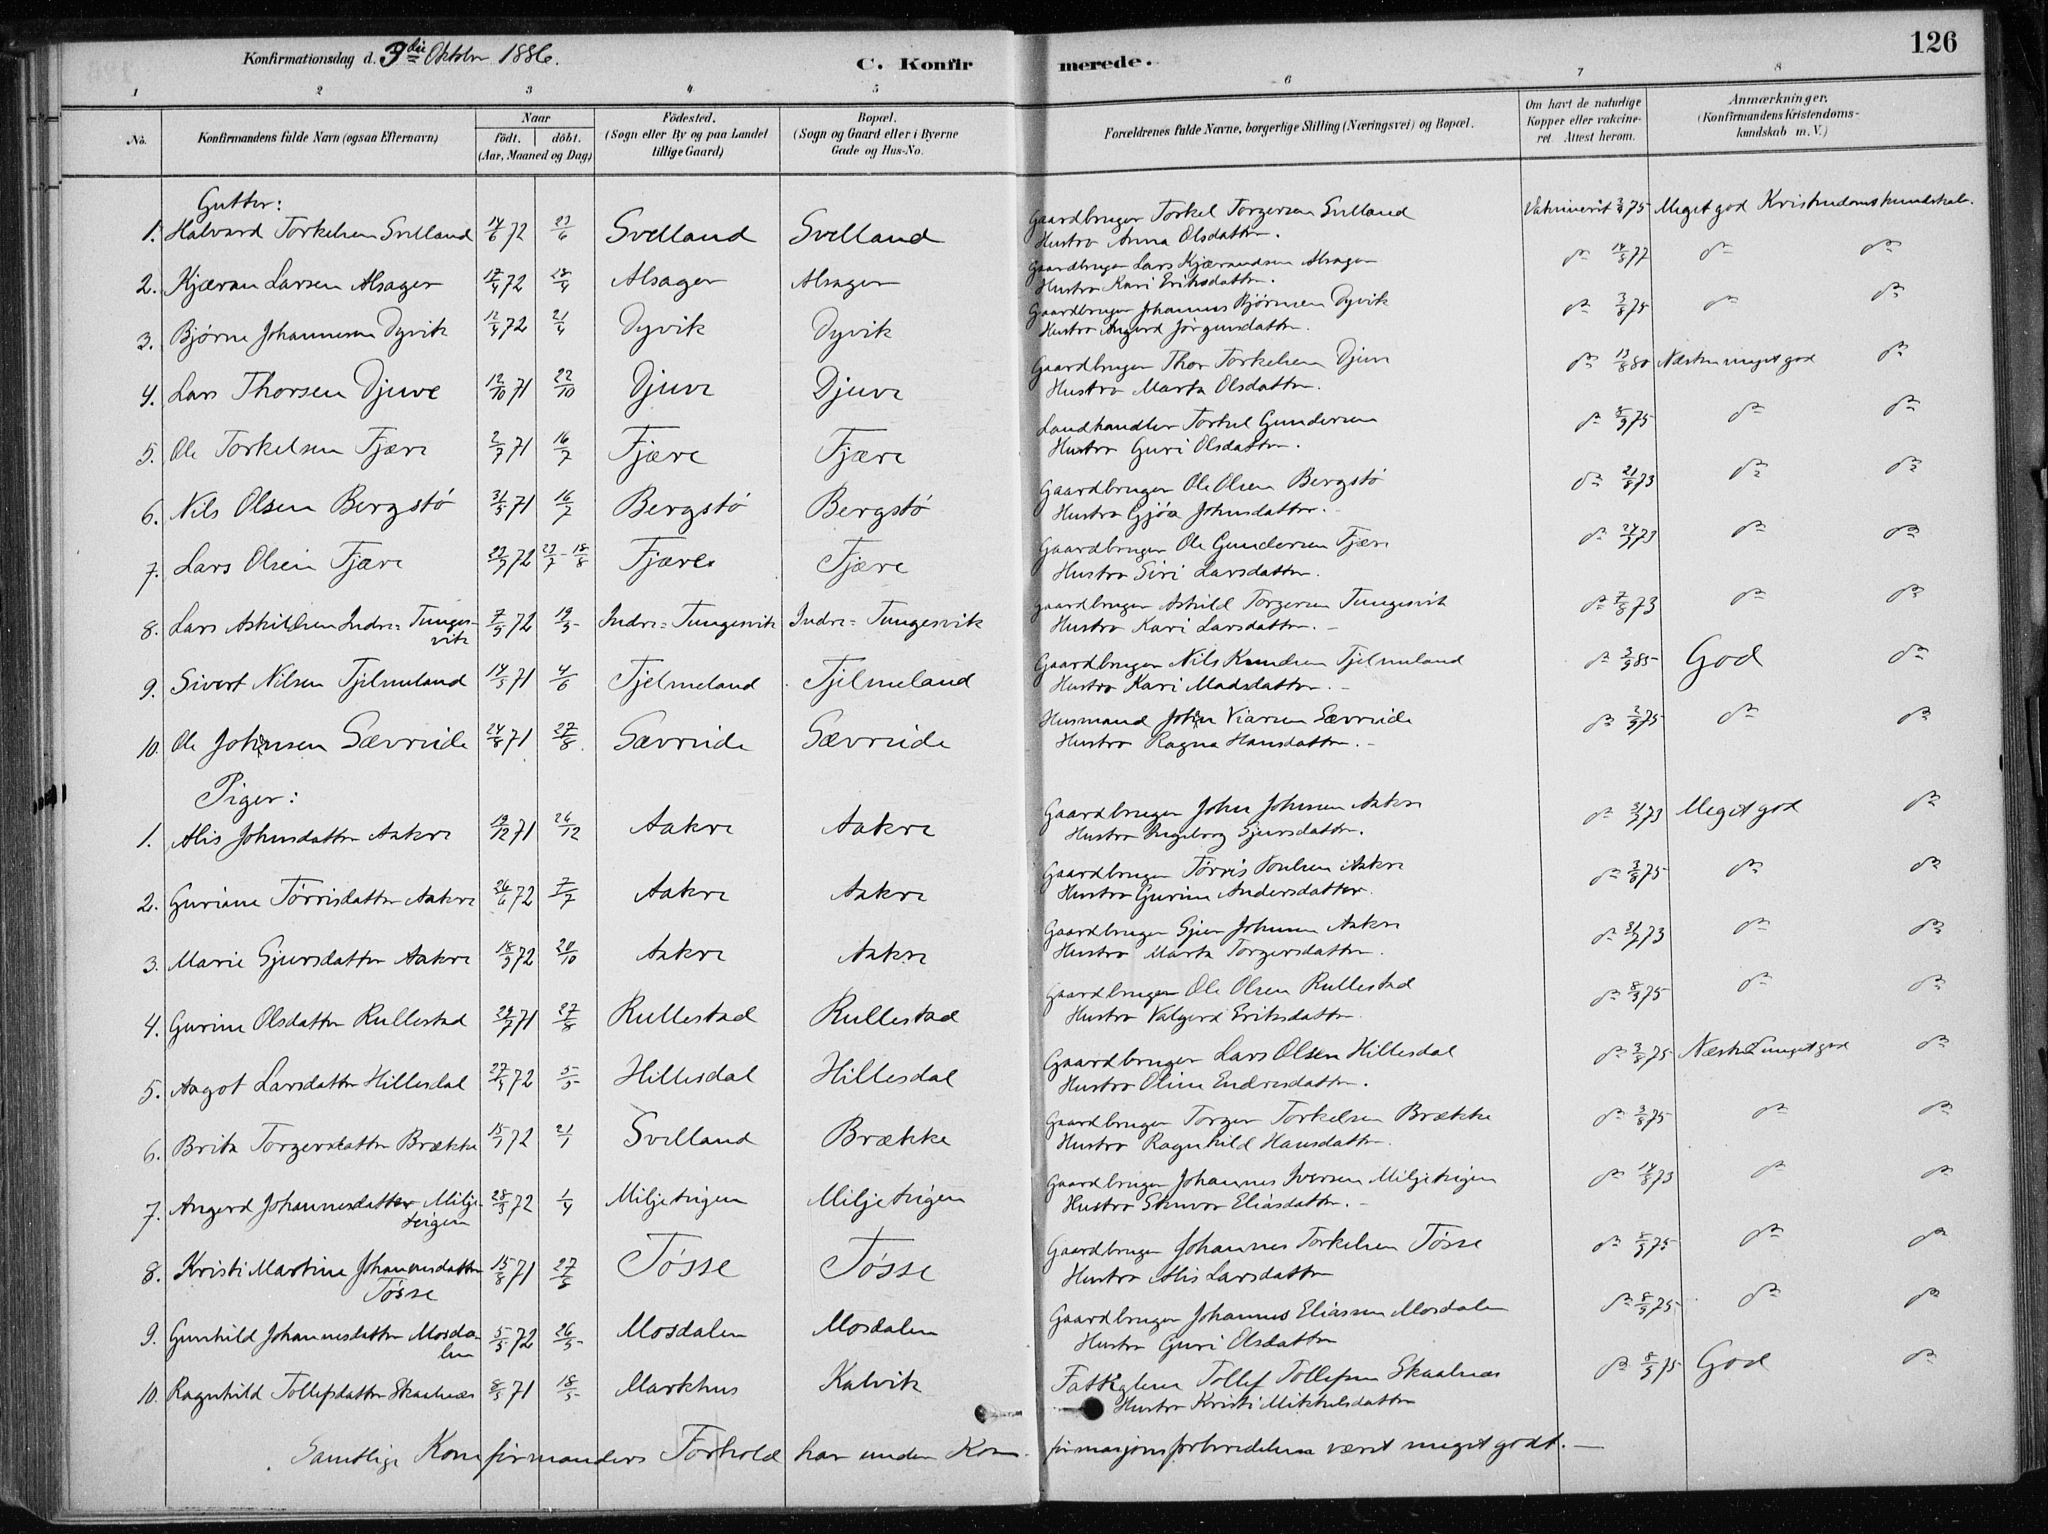 126
Konfirmationsdag d. 3die Oktober 1886.
C. Konfirmerede.
1 2 3 4 5 6 7 8
No. Konfirmandens fulde Navn (ogsaa Efternavn) Naar födt. döbt. (Aar, Maaned og Dag) Födested. (Sogn eller By og paa Landet tillige Gaard) Bopæl. (Sogn og Gaard eller i Byerne Gade og Hus-No. Forældrenes fulde Navne, borgerlige Stilling (Næringsvei) og Bopæl. Om havt de naturlige Kopper eller vakcineret. Attest herom. Anmærkninger. (Konfirmandens Kristendomskundskab m. V.)
Gutter:
1. Halvard Torkelsen Svelland 14/6 72 23/6 Svelland Svelland Gaardbruger Torkel Torgersen Svelland Vakcineret 3/8 75 Meget god Kristendomskundskab.
Hustro Anna Olsdatter.
2. Kjæran Larsen Alsager 17/4 72 28/4 Alsager Alsager Gaardbruger Lars Kjærandsen Alsager do 14/8 77 do do
Hustro Kari Eriksdatter.
3. Bjørne Johannesen Dyvik 12/4 72 21/4 Dyvik Dyvik Gaardbruger Johannes Bjørnsen Dyvik do 3/8 75 do do
Hustro Angerd Jørgensdatter.
4. Lars Thorsen Djuve 12/10 71 22/10 Djuve Djuve Gaardbruger Thor Torkelsen Djuve do 13/8 80 Næsten meget god do
Hustro Marta Olsdatter.
5. Ole Torkelsen Fjære 2/7 71 16/7 Fjære Fjære Landhandler Torkel Gundersen do 8/9 75 do do
Hustro Guri Olsdatter.
6. Nils Olsen Bergstø 31/5 71 16/7 Bergstø Bergstø Gaardbruger Ole Olsen Bergstø do 21/8 73 do do
Hustro Gjøa Johnsdatter.
7. Lars Olsen Fjære 22/7 72 23/7 - 18/8 Fjære Fjære Gaardbruger Ole Gundersen Fjære do 24/9 73 do do
Hustro Siri Larsdatter.
8. Lars Askildsen Indre=Tungesvik 7/5 72 19/5 Indre=Tungesvik Indre=Tungesvik Gaardbruger Askild Torgersen Tungesvik do 7/8 73 do do
Hustro Kari Larsdatter.
9. Sivert Nilsen Fjelmeland 14/5 71 4/6 Fjelmeland Fjelmeland Gaardbruger Nils Knudsen Fjelmeland do 3/9 85 God do
Hustro Kari Madsdatter.
10. Ole Johnsen Sævreide 24/8 71 27/8 Sævreide Sævreide Husmand John Viarsen Sævreide do 2/9 75 do do
Hustro Ragna Hansdatter.
Piger:
1. Alis Johnsdatter Aakre 19/12 71 26/12 Aakre Aakre Gaardbruger John Johnsen Aakre do 31/7 73 Meget god do
Hustro Ingeborg Sjursdatter.
2. Guriane Tørrisdatter Aakre 26/6 72 7/7 Aakre Aakre Gaardbruger Tørris Poulsen Aakre do 3/8 75 do do
Hustro Gurine Andersdatter.
3. Marie Sjursdatter Aakre 18/9 72 20/10 Aakre Aakre Gaardbruger Sjur Johnsen Aakre do 31/7 73 do do
Hustro Marta Torgersdatter.
4. Gurine Olsdatter Rullestad 29/7 71 27/8 Rullestad Rullestad Gaardbruger Ole Olsen Rullestad do 8/9 75 do do
Hustro Valgerd Eriksdatter.
5. Aagot Larsdatter Hillesdal 27/4 72 5/5 Hillesdal Hillesdal Gaardbruger Lars Olsen Hillesdal do 3/8 75 Næsten meget god do
Hustro Oline Endresdatter.
6. Brita Torgersdatter Brække 15/1 72 21/1 Svelland Brække Gaardbruger Torger Torkelsen Brække do 3/8 75 do do
Hustro Ragnhild Hansdatter.
7. Angerd Johannesdatter Miljeteigen 28/3 72 1/4 Miljeteigen Miljeteigen Gaardbruger Johannes Iversen Miljeteigen do 14/8 73 do do
Hustro Steinvor Eliasdatter.
8. Kristi Martine Johannesdatter Tøsse 15/8 71 27/8 Tøsse Tøsse Gaardbruger Johannes Torkelsen Tøsse do 8/9 75 do do
Hustro Alis Larsdatter
9. Gunhild Johannesdatter Mosdalen 5/5 72 26/5 Mosdalen Mosdalen Gaardbruger Johannes Eliassen Mosdalen do 8/9 75 do do
Hustro Guri Olsdatter
10. Ragnhild Tollefsdatter Skaalnæs 8/5 71 18/5 Markhus Kalvik Fattiglem Tollef Tollefsen Skaalnæs do 8/9 75 God do
Hustro Kristi Mikkelsdatter
Samtlige Konfirmanders Forhold har under Konfirmasjonsforberedelsen været meget godt.